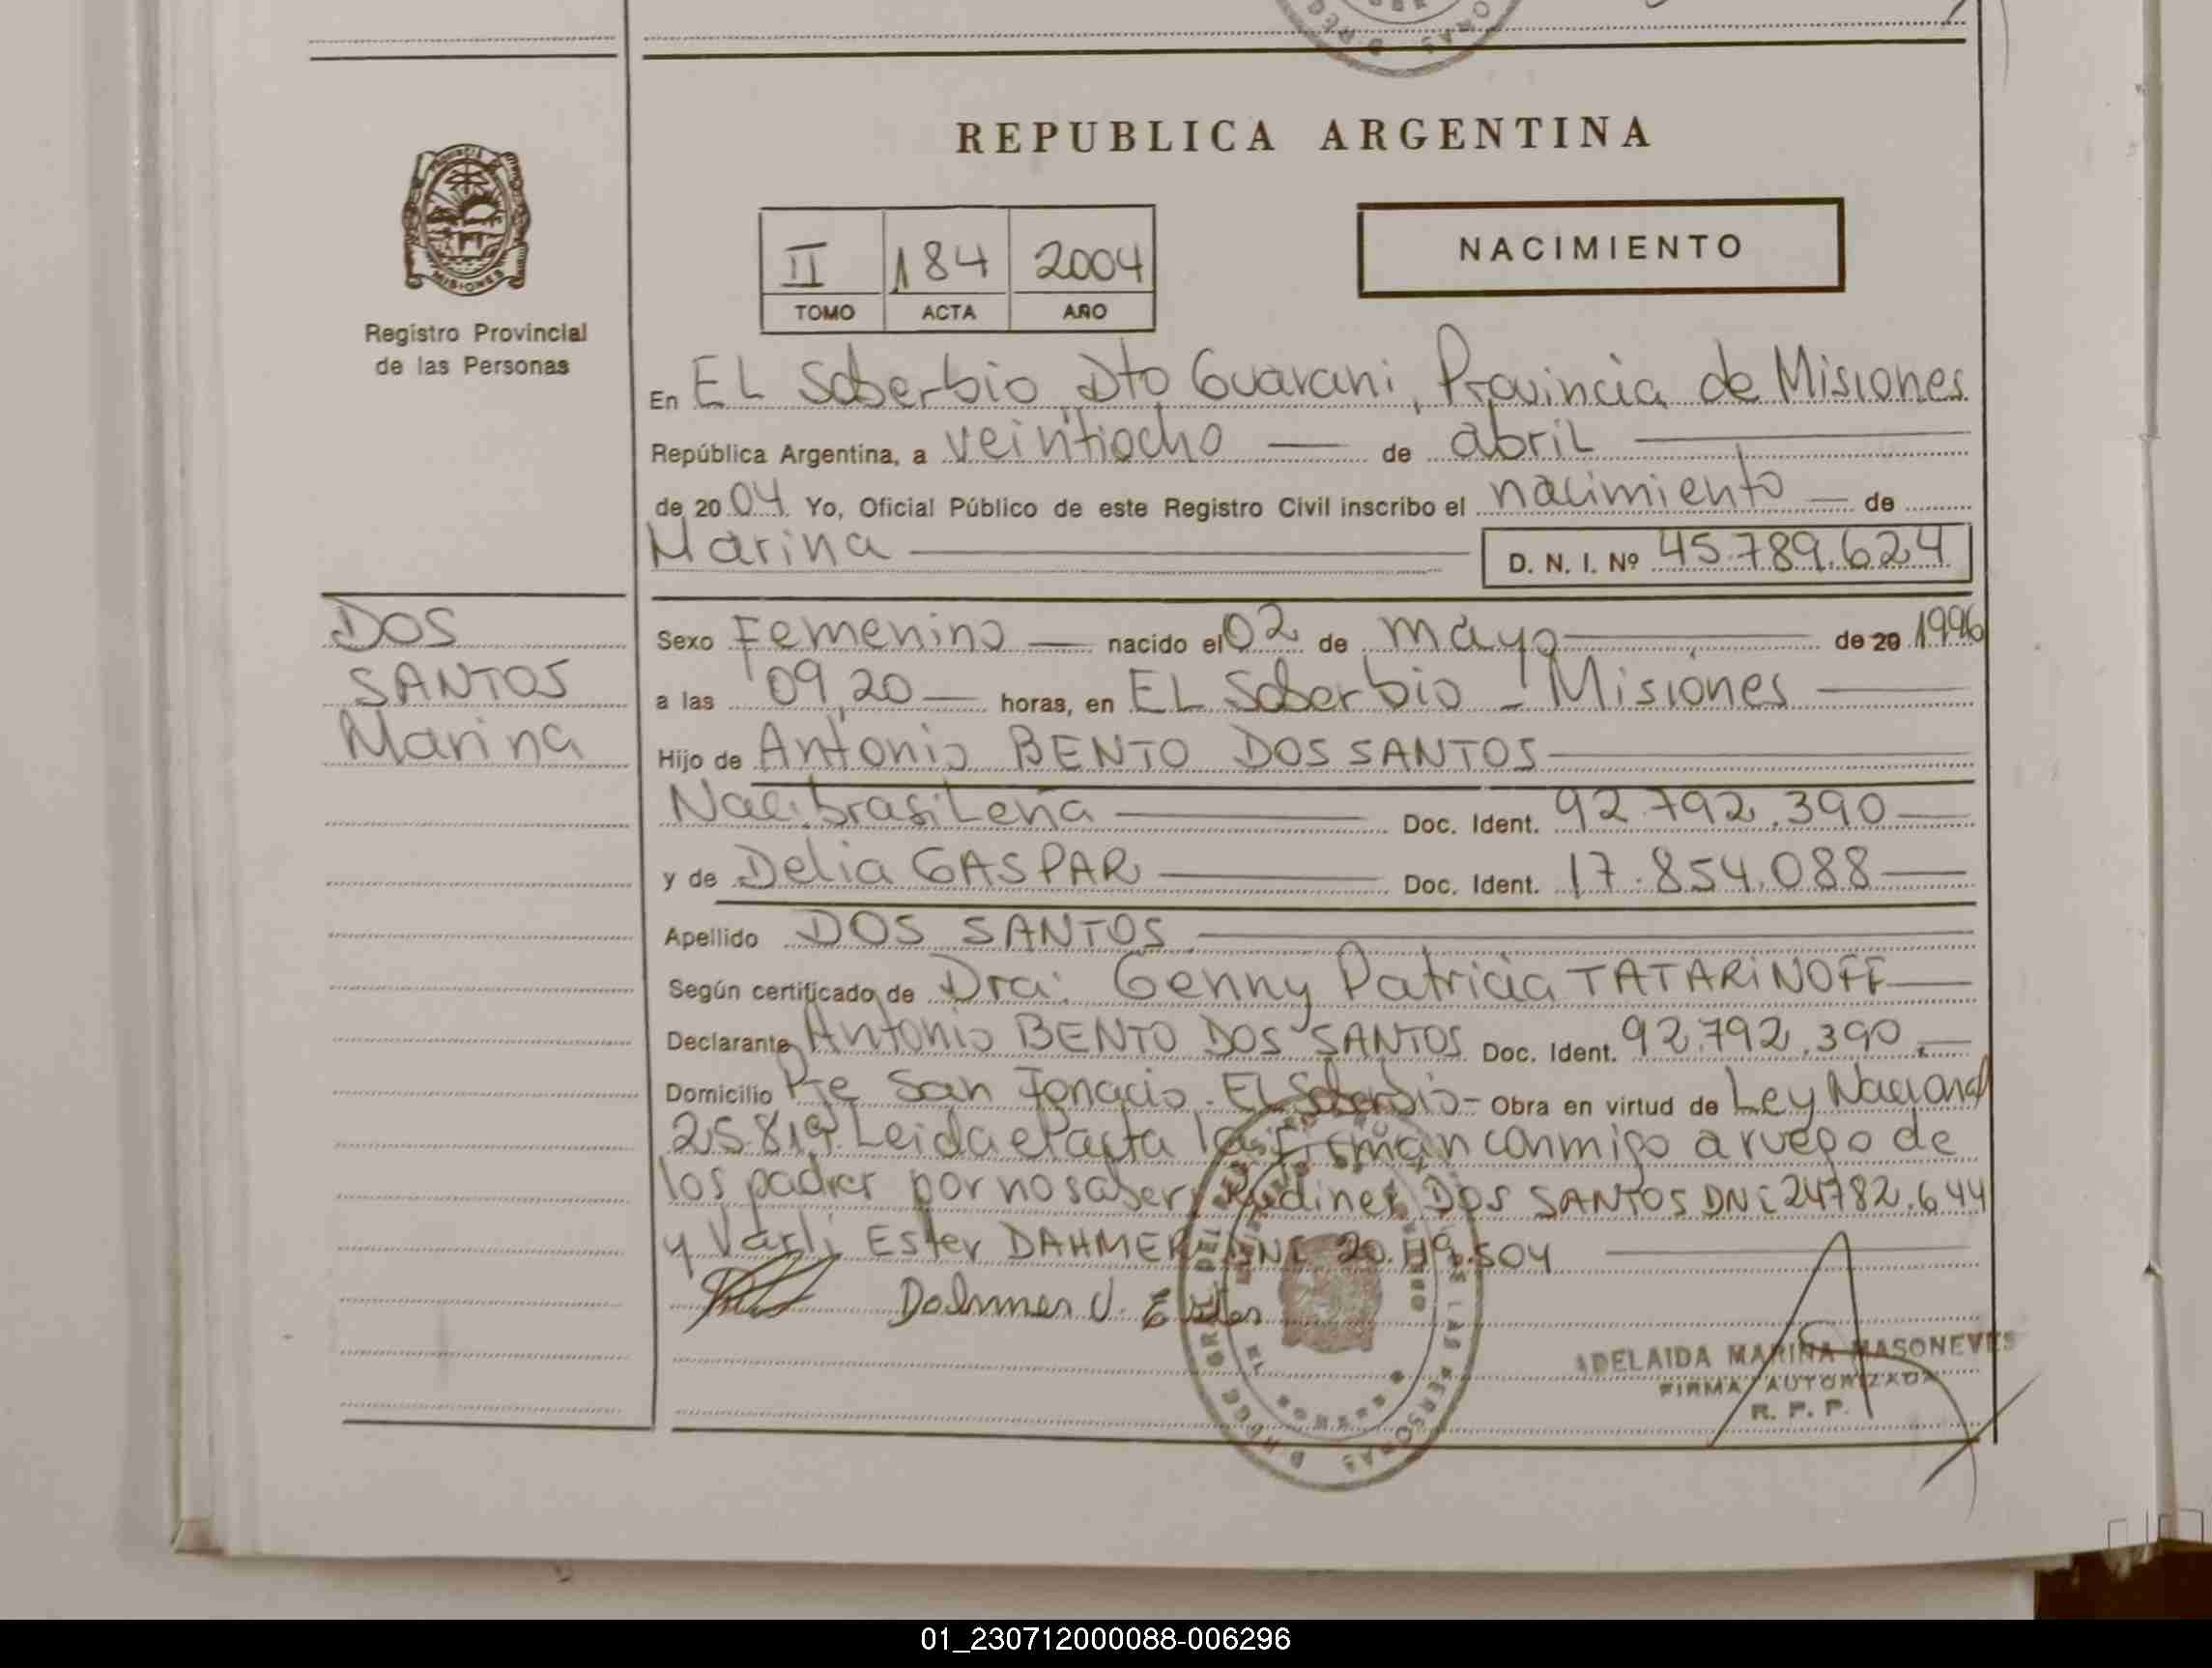 REPUBLICA ARGENTINA
PROVINCIA
MISIONES
Registro Provincial
de las Personas
II 184 2004
TOMO ACTA AÑO
NACIMIENTO
En EL Soberbio Dto Guarani, Provincia de Misiones
República Argentina, a veintiocho — de abril
de 20 04 Yo, Oficial Público de este Registro Civil inscribo el nacimiento — de
Marina — D. N. I. Nº 45.789.624
DOS
SANTOS
Marina
Sexo Femenino — nacido el 02 de mayo — de 20 1996
a las 09,20 — horas, en EL Soberbio - Misiones —
Hijo de Antonio BENTO DOS SANTOS —
Nac: brasileña — Doc. Ident. 92.792.390 —
y de Delia GASPAR — Doc. Ident. 17.854.088 —
Apellido DOS SANTOS —
Según certificado de Dra: Genny Patricia TATARINOFF —
Declarante Antonio BENTO DOS SANTOS Doc. Ident. 92.792.390.—
Domicilio Pje San Ignacio. El Soberbio - Obra en virtud de Ley Nacional
25.819. Leida el acta la firman conmigo a ruego de
los padres por no saber, DOS SANTOS DNi 24782.644
y Ester DAHMER DNi 20.119.504 —
Dahmer V. Ester
ADELAIDA MARINA MASONEVES
FIRMA AUTORIZADA
R. P. P.
01_230712000088-006296